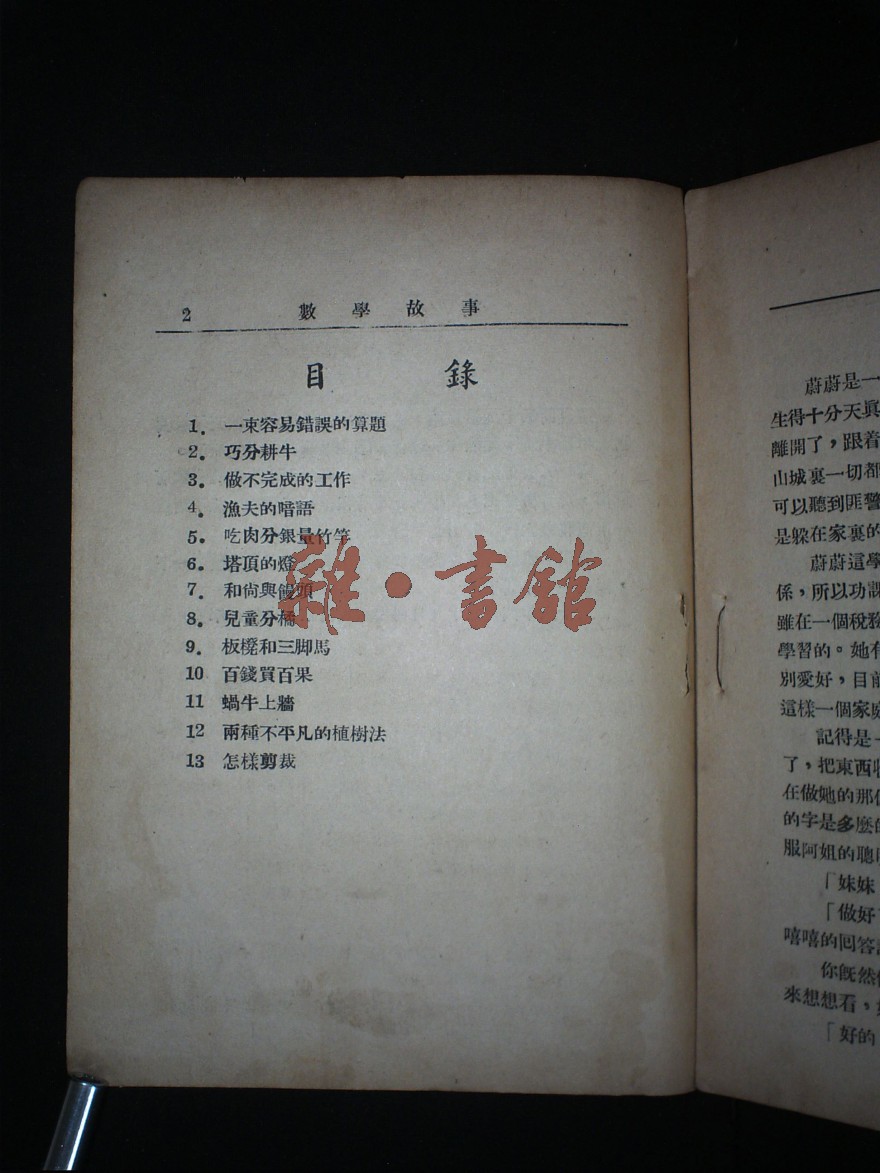 2 數學故事
目錄
1. 一束容易錯誤的算題
2. 巧分耕牛
3. 做不完成的工作
4. 漁夫的嚐語
5. 吃肉分銀量竹竿
6. 塔頂的燈
7. 和尚與饅頭
8. 兒童分橘
9. 板櫈和三脚馬
10 百錢買百果
11 蝸牛上牆
12 兩種不平凡的植樹法
13 怎樣剪裁
雜·書館
蔚蔚是一
生得十分天眞
離開了，跟着
山城裏一切都
可以聽到匪警
是躱在家裏的
蔚蔚這學
係，所以功課
雖在一個稅務
學習的。她有
別愛好，目前
這樣一個家庭
記得是一
了，把東西收
在做她的那
的字是多麽的
服阿姐的聰
「妹妹
「做好
嘻嘻的回答
你旣然
來想想看，
「好的